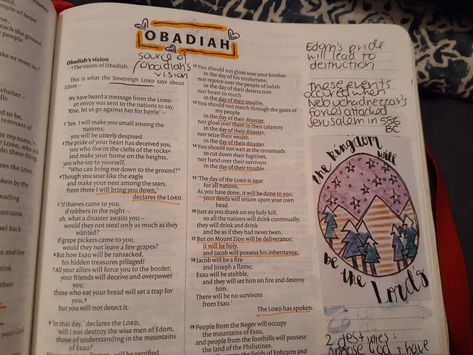 OBADIAH
source of
Obadiah's
vision
Obadiah's vision
1 The vision of Obadiah.
This is what the Sovereign LORD says about
Edom –
We have heard a message from the LORD:
an envoy was sent to the nations to say,
'Rise, let us go against her for battle' –
2 'See, I will make you small among the
nations;
you will be utterly despised.
3 The pride of your heart has deceived you,
you who live in the clefts of the rocks
and make your home on the heights,
you who say to yourself,
"Who can bring me down to the ground?"
4 Though you soar like the eagle
and make your nest among the stars,
from there I will bring you down,'
declares the LORD.
5 'If thieves came to you,
if robbers in the night –
oh, what a disaster awaits you –
would they not steal only as much as they
wanted?
If grape pickers came to you,
would they not leave a few grapes?
6 But how Esau will be ransacked,
his hidden treasures pillaged!
7 All your allies will force you to the border;
your friends will deceive and overpower
you;
those who eat your bread will set a trap for
you,
but you will not detect it.
8 'In that day,' declares the LORD,
'will I not destroy the wise men of Edom,
those of understanding in the mountains
of Esau?
12 You should not gloat over your brother
in the day of his misfortune,
nor rejoice over the people of Judah
in the day of their destruction,
nor boast so much
in the day of their trouble.
13 You should not march through the gates of
my people
in the day of their disaster,
nor gloat over them in their calamity
in the day of their disaster,
nor seize their wealth
in the day of their disaster.
14 You should not wait at the crossroads
to cut down their fugitives,
nor hand over their survivors
in the day of their trouble.
15 'The day of the LORD is near
for all nations.
As you have done, it will be done to you;
your deeds will return upon your own
head.
16 Just as you drank on my holy hill,
so all the nations will drink continually;
they will drink and drink
and be as if they had never been.
17 But on Mount Zion will be deliverance;
it will be holy,
and Jacob will possess his inheritance.
18 Jacob will be a fire
and Joseph a flame;
Esau will be stubble,
and they will set him on fire and destroy
him.
There will be no survivors
from Esau.'
The LORD has spoken.
19 People from the Negev will occupy
the mountains of Esau,
and people from the foothills will possess
the land of the Philistines.
Edom's pride
will lead to
destruction
These events
occured when
Nebuchadnezzar's
forces attacked
Jerusalem in
BC
the kingdom will
be the Lord's
2 destinies: